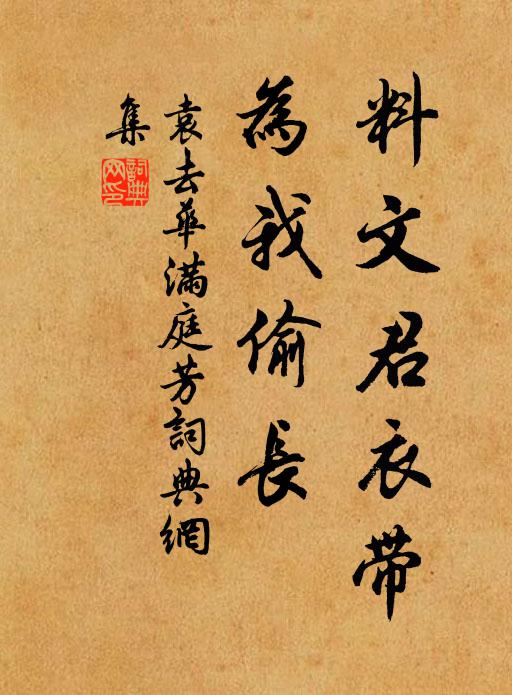 料文君衣帶
為我偷長
袁去華滿庭芳詞典網
集
詞典網印